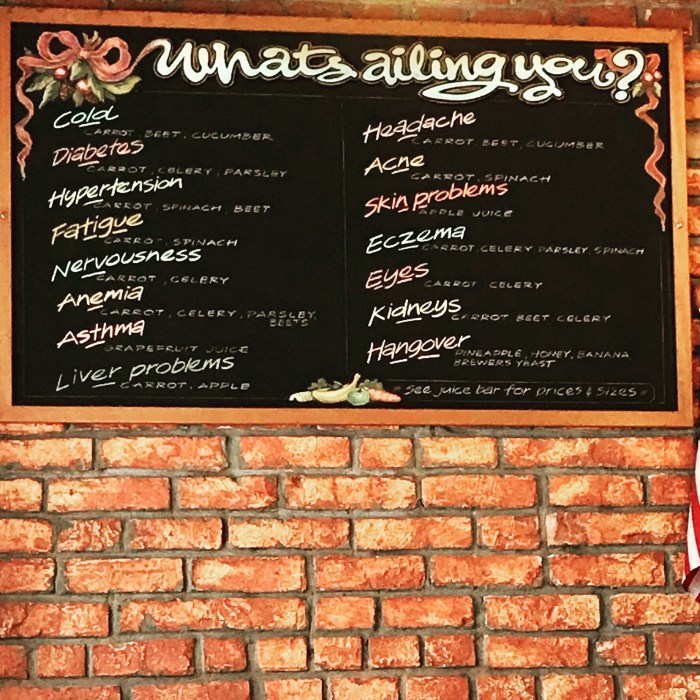 Whats ailing you?
Cold
CARROT, BEET, CUCUMBER
Diabetes
CARROT, CELERY, PARSLEY
Hypertension
CARROT, SPINACH, BEET
Fatigue
CARROT, SPINACH
Nervousness
CARROT, CELERY
Anemia
CARROT, CELERY, PARSLEY,
BEETS
Asthma
GRAPEFRUIT JUICE
Liver problems
CARROT, APPLE
Headache
CARROT BEET, CUCUMBER
Acne
CARROT, SPINACH
Skin problems
APPLE JUICE
Eczema
CARROT, CELERY, PARSLEY, SPINACH
Eyes
CARROT CELERY
Kidneys
CARROT BEET CELERY
Hangover
PINEAPPLE, HONEY, BANANA
BREWERS YEAST
See juice bar for prices & sizes